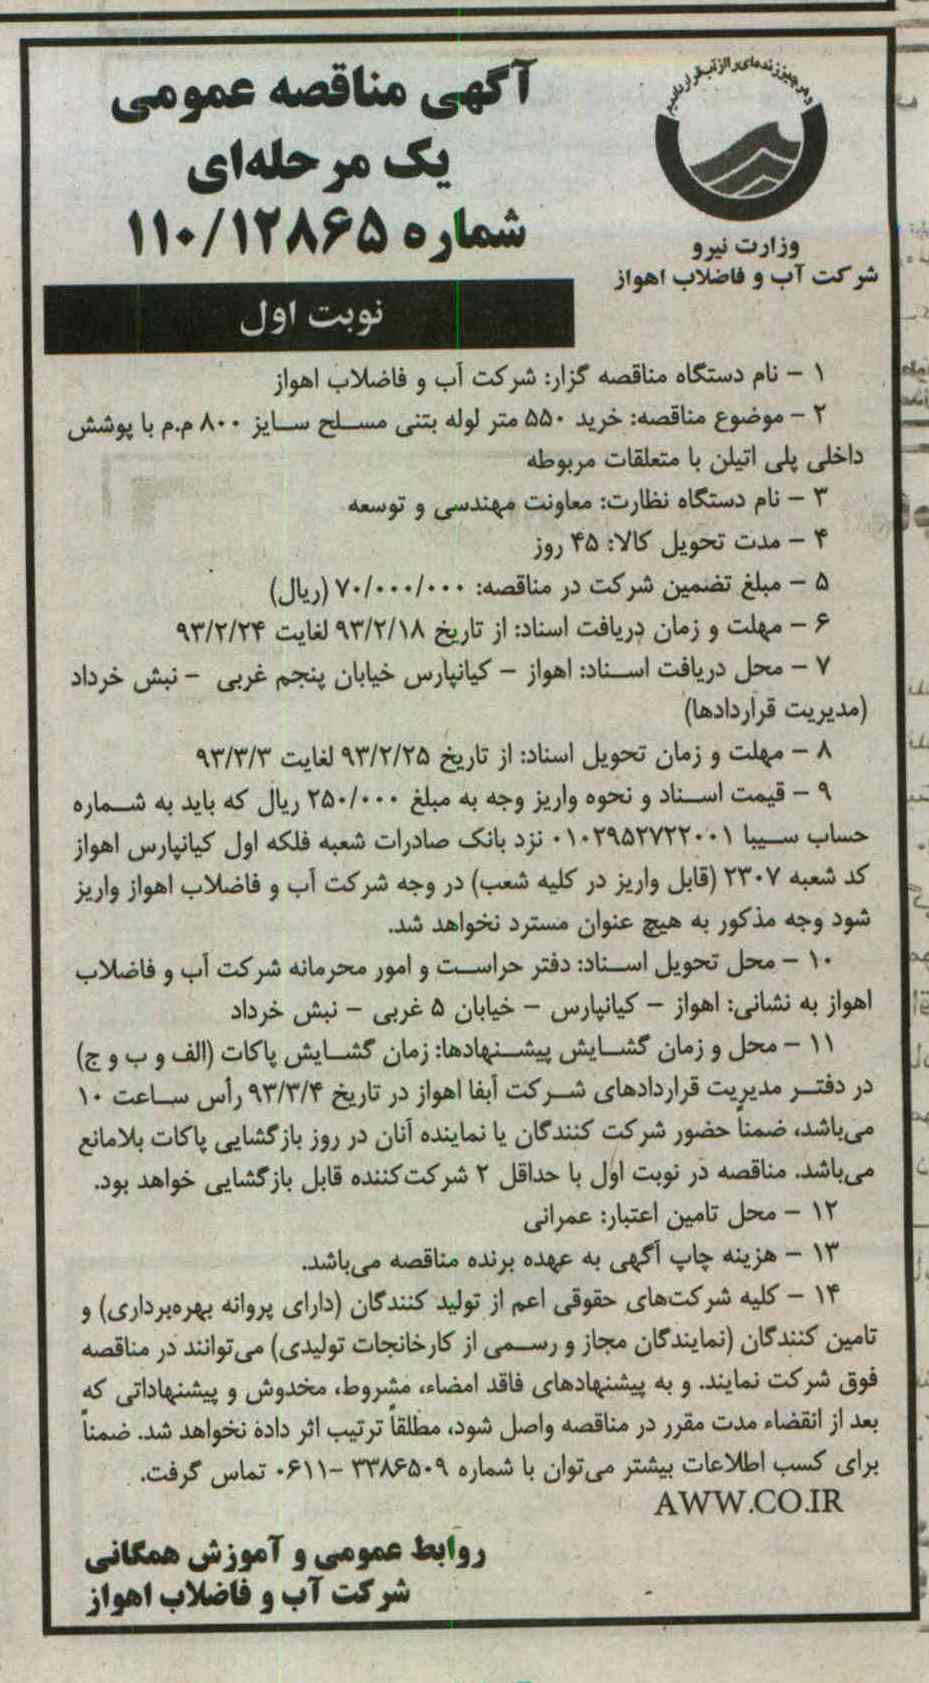 و هر چیز زنده‌ای را از آب قرار دادیم
وزارت نیرو
شرکت آب و فاضلاب اهواز
آگهی مناقصه عمومی
یک مرحله‌ای
شماره ۱۱۰/۱۲۸۶۵
نوبت اول
۱ – نام دستگاه مناقصه گزار: شرکت آب و فاضلاب اهواز
۲ – موضوع مناقصه: خرید ۵۵۰ متر لوله بتنی مسلح سایز ۸۰۰ م.م با پوشش
داخلی پلی اتیلن با متعلقات مربوطه
۳ – نام دستگاه نظارت: معاونت مهندسی و توسعه
۴ – مدت تحویل کالا: ۴۵ روز
۵ – مبلغ تضمین شرکت در مناقصه: ۷۰/۰۰۰/۰۰۰ (ریال)
۶ – مهلت و زمان دریافت اسناد: از تاریخ ۹۳/۲/۱۸ لغایت ۹۳/۲/۲۴
۷ – محل دریافت اسناد: اهواز – کیانپارس خیابان پنجم غربی – نبش خرداد
(مدیریت قراردادها)
۸ – مهلت و زمان تحویل اسناد: از تاریخ ۹۳/۲/۲۵ لغایت ۹۳/۳/۳
۹ – قیمت اسناد و نحوه واریز وجه به مبلغ ۲۵۰/۰۰۰ ریال که باید به شماره
حساب سیبا ۰۱۰۲۹۵۲۷۲۲۰۰۱ نزد بانک صادرات شعبه فلکه اول کیانپارس اهواز
کد شعبه ۲۳۰۷ (قابل واریز در کلیه شعب) در وجه شرکت آب و فاضلاب اهواز واریز
شود وجه مذکور به هیچ عنوان مسترد نخواهد شد.
۱۰ – محل تحویل اسناد: دفتر حراست و امور محرمانه شرکت آب و فاضلاب
اهواز به نشانی: اهواز – کیانپارس – خیابان ۵ غربی – نبش خرداد
۱۱ – محل و زمان گشایش پیشنهادها: زمان گشایش پاکات (الف و ب و ج)
در دفتر مدیریت قراردادهای شرکت آبفا اهواز در تاریخ ۹۳/۳/۴ رأس ساعت ۱۰
می‌باشد، ضمناً حضور شرکت کنندگان یا نماینده آنان در روز بازگشایی پاکات بلامانع
می‌باشد. مناقصه در نوبت اول با حداقل ۲ شرکت‌کننده قابل بازگشایی خواهد بود.
۱۲ – محل تامین اعتبار: عمرانی
۱۳ – هزینه چاپ آگهی به عهده برنده مناقصه می‌باشد.
۱۴ – کلیه شرکت‌های حقوقی اعم از تولید کنندگان (دارای پروانه بهره‌برداری) و
تامین کنندگان (نمایندگان مجاز و رسمی از کارخانجات تولیدی) می‌توانند در مناقصه
فوق شرکت نمایند. و به پیشنهادهای فاقد امضاء، مشروط، مخدوش و پیشنهاداتی که
بعد از انقضاء مدت مقرر در مناقصه واصل شود، مطلقاً ترتیب اثر داده نخواهد شد. ضمناً
برای کسب اطلاعات بیشتر می‌توان با شماره ۳۳۸۶۵۰۹ –۰۶۱۱ تماس گرفت.
AWW.CO.IR
روابط عمومی و آموزش همگانی
شرکت آب و فاضلاب اهواز